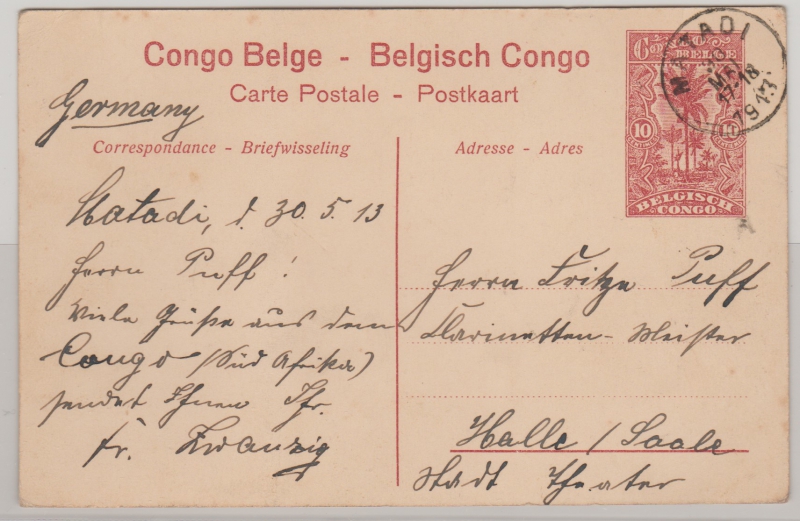 Congo Belge - Belgisch Congo
Carte Postale - Postkaart
Germany
Correspondance - Briefwisseling
Matadi, d. 30.5.13
Herrn Puff!
Viele Grüße aus dem
Congo (Süd Afrika)
sendet Ihnen Ihr.
Fr. Zwanzig
CONGO BELGE
10
BELGISCH
CONGO
MATADI
17-18
1913
Adresse - Adres
Herrn Fritze Puff
Clarinetten-Meister
Halle / Saale
Stadt Theater